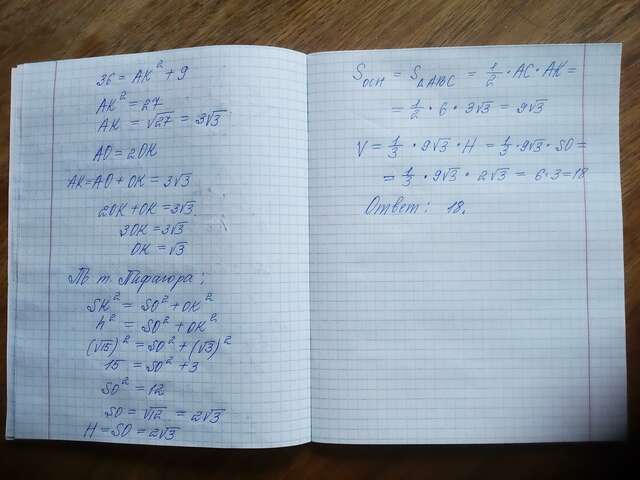 36 = AK² + 9
AK² = 27
AK = √27 = 3√3
AO = 2OK
AK = AO + OK = 3√3
2OK + OK = 3√3
3OK = 3√3
OK = √3
По т. Пифагора:
SK² = SO² + OK²
h² = SO² + OK²
(√15)² = SO² + (√3)²
15 = SO² + 3
SO² = 12
SO = √12 = 2√3
H = SO = 2√3
Sосн = S△ABC = 1/2 · AC · AK =
= 1/2 · 6 · 3√3 = 9√3
V = 1/3 · 9√3 · H = 1/3 · 9√3 · SO =
= 1/3 · 9√3 · 2√3 = 6 · 3 = 18
Ответ: 18.